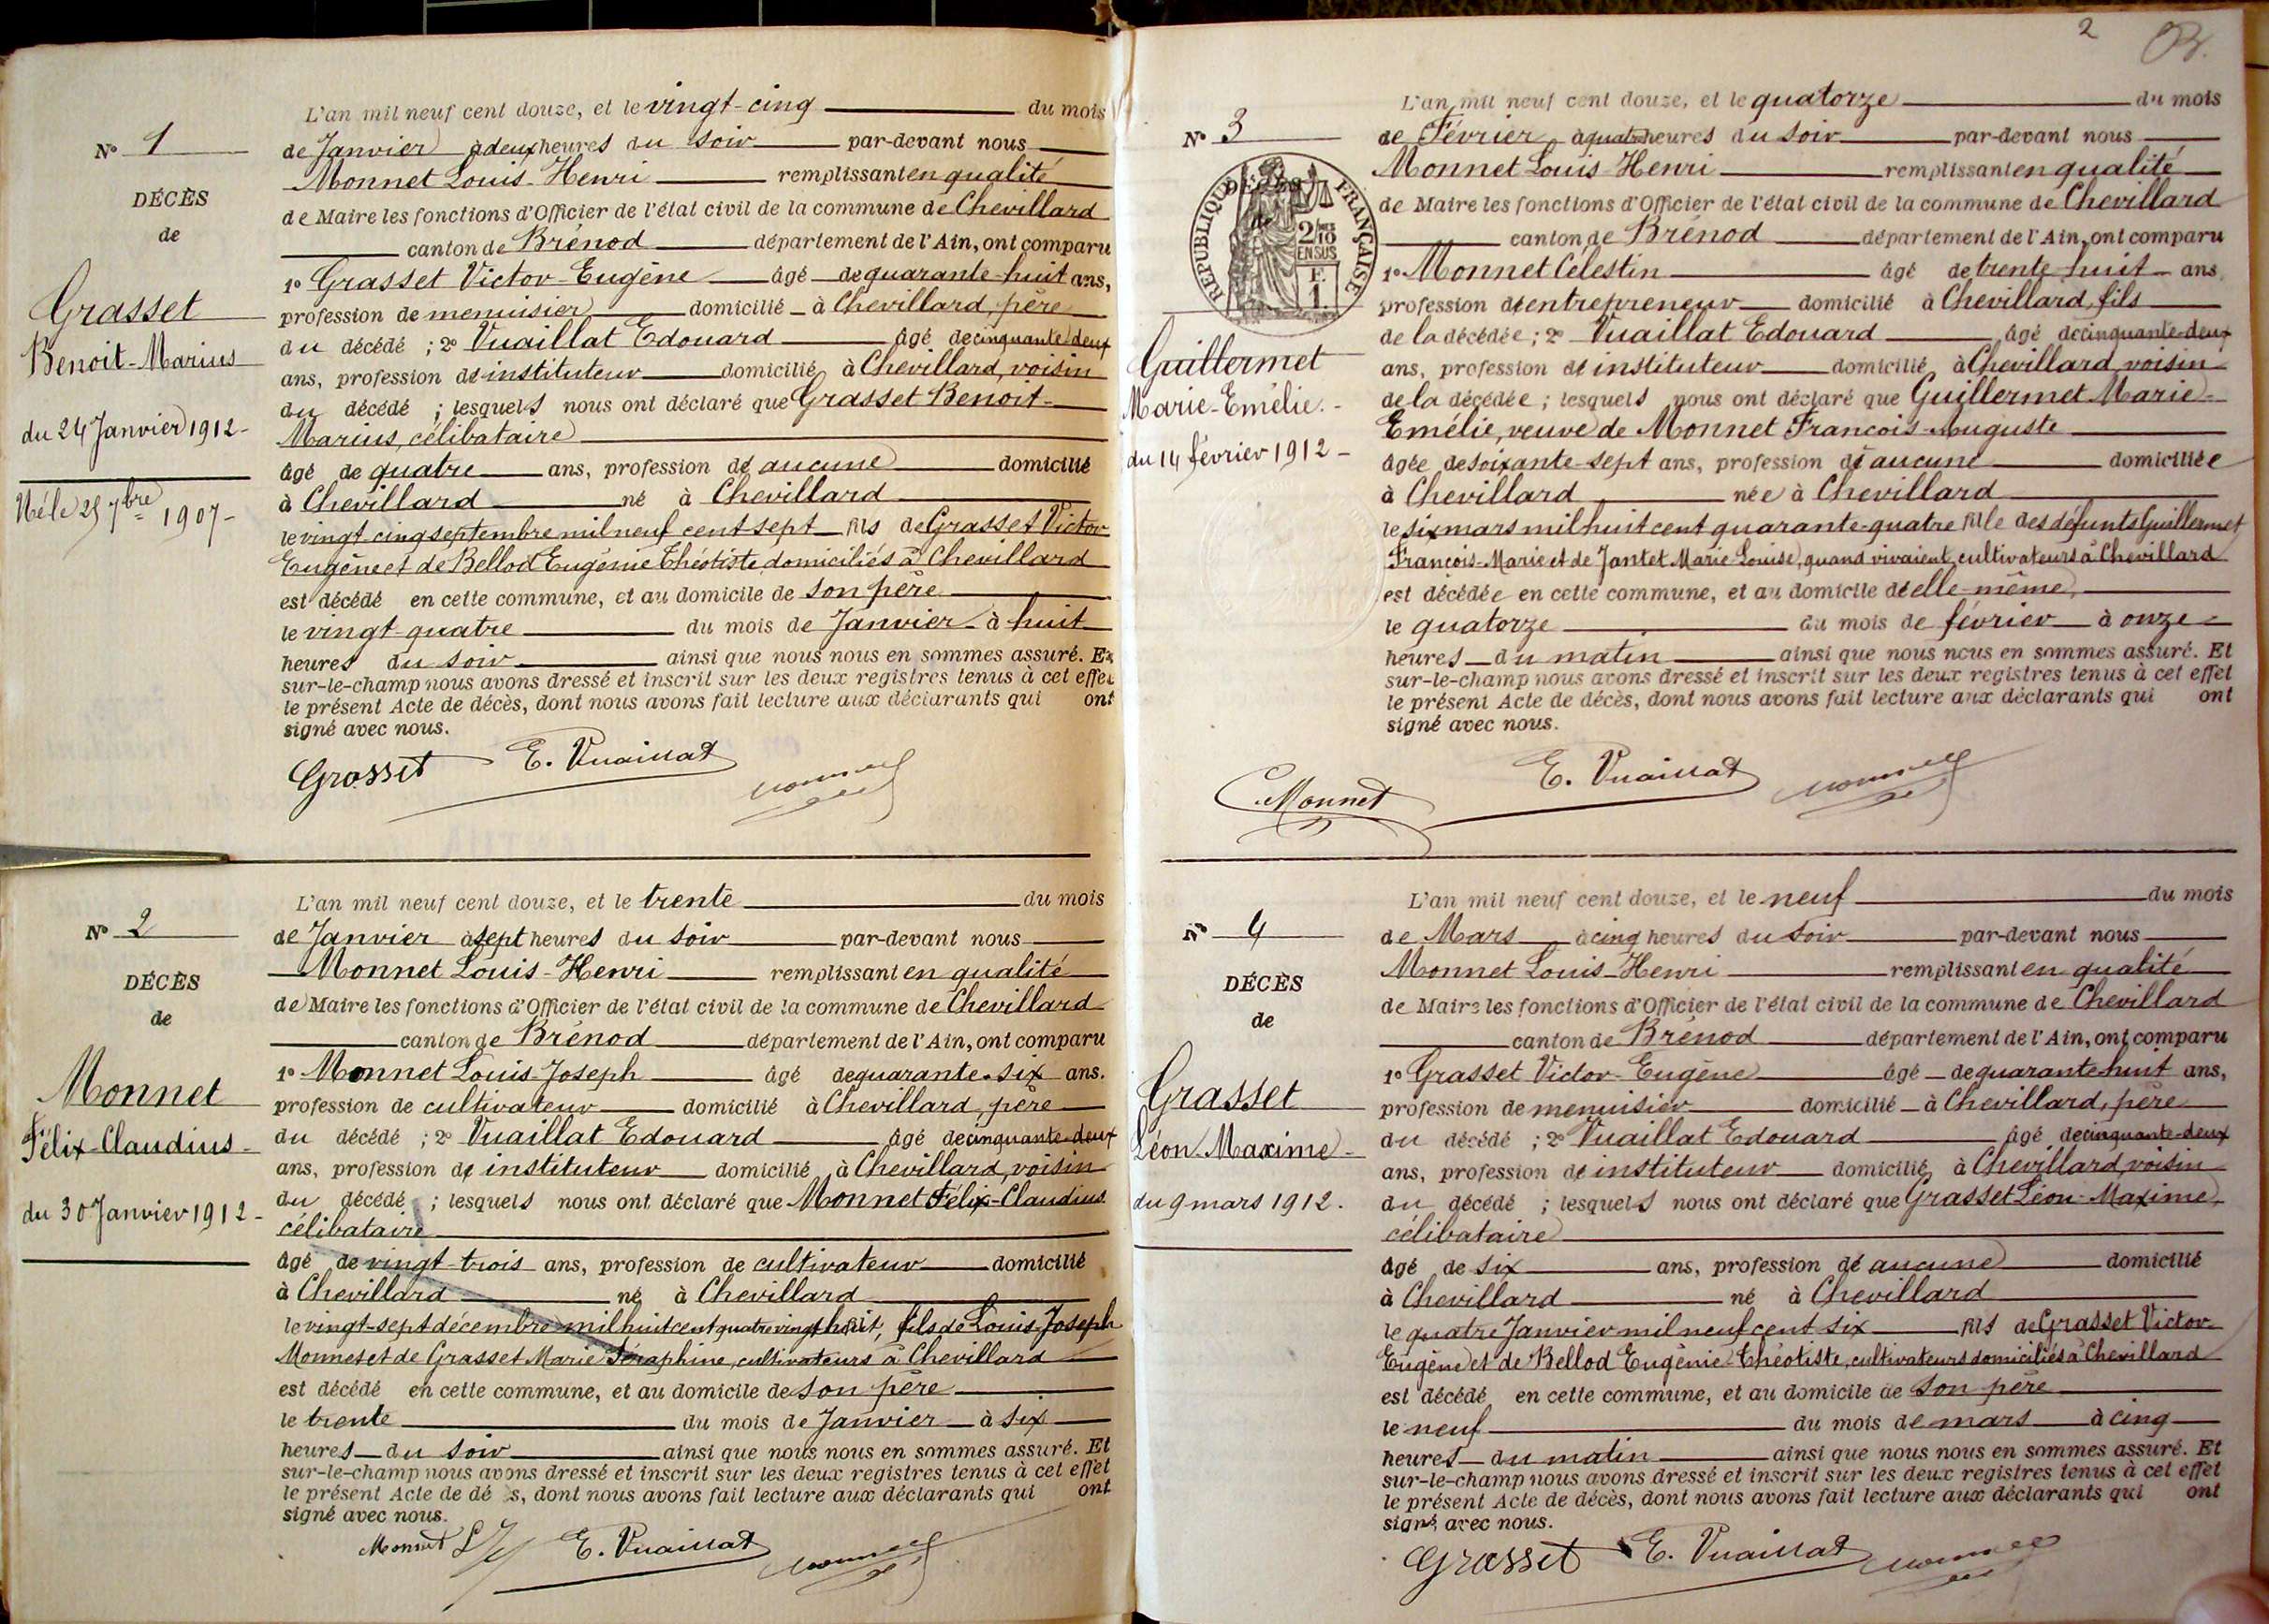 N° 1
DÉCÈS
de
Grasset
Benoit-Marius
du 24 Janvier 1912-
Né le 25 7bre 1907-
L'an mil neuf cent douze, et le vingt-cinq du mois
de Janvier à deux heures du soir par-devant nous
Monnet Louis-Henri remplissant en qualité
de Maire les fonctions d'Officier de l'état civil de la commune de Chevillard
canton de Brénod département de l'Ain, ont comparu
1° Grasset Victor-Eugène âgé de quarante-huit ans,
profession de menuisier domicilié à Chevillard, père
du décédé ; 2° Vuaillat Edouard âgé de cinquante-deux
ans, profession d'instituteur domicilié à Chevillard, voisin
du décédé ; lesquels nous ont déclaré que Grasset Benoit-
Marius, célibataire
âgé de quatre ans, profession de aucune domicilié
à Chevillard né à Chevillard
le vingt-cinq septembre mil neuf cent sept fils de Grasset Victor
Eugène et de Bellod Eugénie Théotiste domiciliés à Chevillard
est décédé en cette commune, et au domicile de son père
le vingt-quatre du mois de Janvier à huit
heures du soir ainsi que nous nous en sommes assuré. Et
sur-le-champ nous avons dressé et inscrit sur les deux registres tenus à cet effet
le présent Acte de décès, dont nous avons fait lecture aux déclarants qui ont
signé avec nous.
Grasset E. Vuaillat Monnet
N° 2
DÉCÈS
de
Monnet
Félix-Claudius-
du 30 Janvier 1912-
L'an mil neuf cent douze, et le trente du mois
de Janvier à sept heures du soir par-devant nous
Monnet Louis-Henri remplissant en qualité
de Maire les fonctions d'Officier de l'état civil de la commune de Chevillard
canton de Brénod département de l'Ain, ont comparu
1° Monnet Louis-Joseph âgé de quarante-six ans.
profession de cultivateur domicilié à Chevillard, père
du décédé ; 2° Vuaillat Edouard âgé de cinquante-deux
ans, profession d'instituteur domicilié à Chevillard, voisin
du décédé ; lesquels nous ont déclaré que Monnet Félix-Claudius
célibataire
âgé de vingt-trois ans, profession de cultivateur domicilié
à Chevillard né à Chevillard
le vingt-sept décembre mil huit cent quatre vingt huit, fils de Louis-Joseph
Monnet et de Grasset Marie Séraphine, cultivateurs à Chevillard
est décédé en cette commune, et au domicile de son père
le trente du mois de Janvier à six
heures du soir ainsi que nous nous en sommes assuré. Et
sur-le-champ nous avons dressé et inscrit sur les deux registres tenus à cet effet
le présent Acte de dé s, dont nous avons fait lecture aux déclarants qui ont
signé avec nous.
Monnet L J E. Vuaillat Monnet
2
N° 3
DÉCÈS
de
RÉPUBLIQUE FRANÇAISE
2/10
EN SUS
F.
1.
Guillermet
Marie-Emélie.-
du 14 février 1912-
L'an mil neuf cent douze, et le quatorze du mois
de Février à quatre heures du soir par-devant nous
Monnet Louis-Henri remplissant en qualité
de Maire les fonctions d'Officier de l'état civil de la commune de Chevillard
canton de Brénod département de l'Ain, ont comparu
1° Monnet Célestin âgé de trente-huit ans,
profession d'entrepreneur domicilié à Chevillard, fils
de la décédée ; 2° Vuaillat Edouard âgé de cinquante-deux
ans, profession d'instituteur domicilié à Chevillard, voisin
de la décédée ; lesquels nous ont déclaré que Guillermet Marie-
Emélie, veuve de Monnet François-Auguste
âgée de soixante-sept ans, profession de aucune domiciliée
à Chevillard née à Chevillard
le six mars mil huit cent quarante-quatre fille des défunts Guillermet
François-Marie et de Jantet Marie-Louise, quand vivaient, cultivateurs à Chevillard
est décédée en cette commune, et au domicile d'elle-même,
le quatorze du mois de février à onze
heures du matin ainsi que nous nous en sommes assuré. Et
sur-le-champ nous avons dressé et inscrit sur les deux registres tenus à cet effet
le présent Acte de décès, dont nous avons fait lecture aux déclarants qui ont
signé avec nous.
C. Monnet E. Vuaillat Monnet
N° 4
DÉCÈS
de
Grasset
Léon-Maxime-
du 9 mars 1912.
L'an mil neuf cent douze, et le neuf du mois
de Mars à cinq heures du soir par-devant nous
Monnet Louis-Henri remplissant en qualité
de Maire les fonctions d'Officier de l'état civil de la commune de Chevillard
canton de Brénod département de l'Ain, ont comparu
1° Grasset Victor-Eugène âgé de quarante-huit ans,
profession de menuisier domicilié à Chevillard, père
du décédé ; 2° Vuaillat Edouard âgé de cinquante-deux
ans, profession d'instituteur domicilié à Chevillard, voisin
du décédé ; lesquels nous ont déclaré que Grasset Léon-Maxime,
célibataire
âgé de six ans, profession de aucune domicilié
à Chevillard né à Chevillard
le quatre Janvier mil neuf cent six fils de Grasset Victor-
Eugène et de Bellod Eugénie-Théotiste, cultivateurs domiciliés à Chevillard
est décédé en cette commune, et au domicile de son père
le neuf du mois de mars à cinq
heures du matin ainsi que nous nous en sommes assuré. Et
sur-le-champ nous avons dressé et inscrit sur les deux registres tenus à cet effet
le présent Acte de décès, dont nous avons fait lecture aux déclarants qui ont
signé avec nous.
Grasset E. Vuaillat Monnet